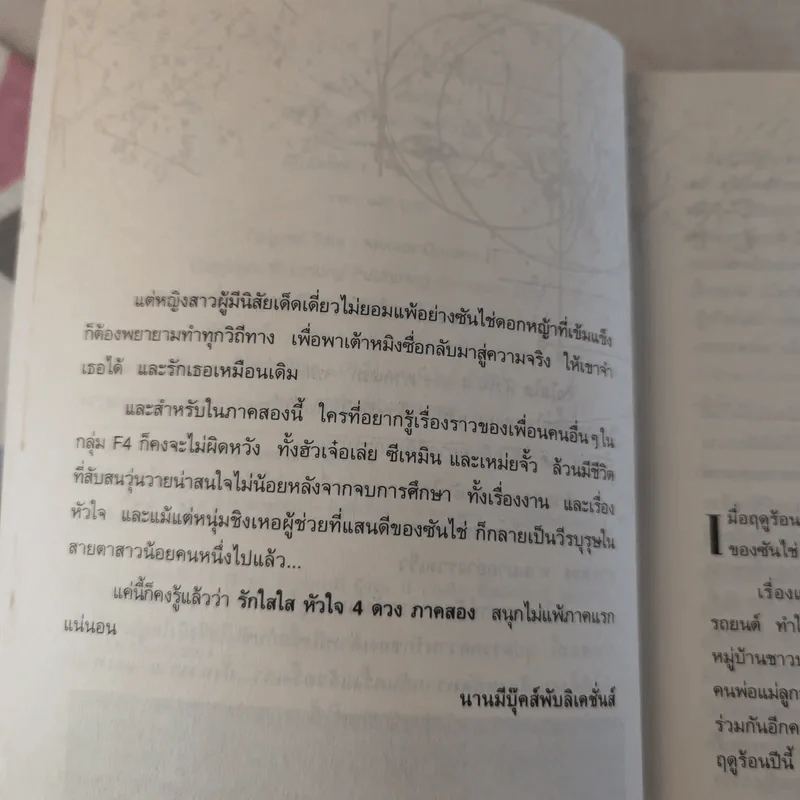 แต่หญิงสาวผู้มีนิสัยเด็ดเดี่ยวไม่ยอมแพ้อย่างซันไช่ดอกหญ้าที่เข้มแข็ง
ก็ต้องพยายามทำทุกวิถีทาง เพื่อพาเต้าหมิงซื่อกลับมาสู่ความจริง ให้เขาจำ
เธอได้ และรักเธอเหมือนเดิม
และสำหรับในภาคสองนี้ ใครที่อยากรู้เรื่องราวของเพื่อนคนอื่นๆใน
กลุ่ม F4 ก็คงจะไม่ผิดหวัง ทั้งฮัวเจ๋อเล่ย ซีเหมิน และเหม่ยจั้ว ล้วนมีชีวิต
ที่สับสนวุ่นวายน่าสนใจไม่น้อยหลังจากจบการศึกษา ทั้งเรื่องงาน และเรื่อง
หัวใจ และแม้แต่หนุ่มชิงเหอผู้ช่วยที่แสนดีของซันไช่ ก็กลายเป็นวีรบุรุษใน
สายตาสาวน้อยคนหนึ่งไปแล้ว...
แค่นี้ก็คงรู้แล้วว่า รักใสใส หัวใจ 4 ดวง ภาคสอง สนุกไม่แพ้ภาคแรก
แน่นอน
นานมีบุ๊คส์พับลิเคชั่นส์
เมื่อฤดูร้อน
ของซันไช่
เรื่อง
รถยนต์ ทำ
หมู่บ้านชาว
คนพ่อแม่ลูก
ร่วมกันอีก
ฤดูร้อนปีนี้